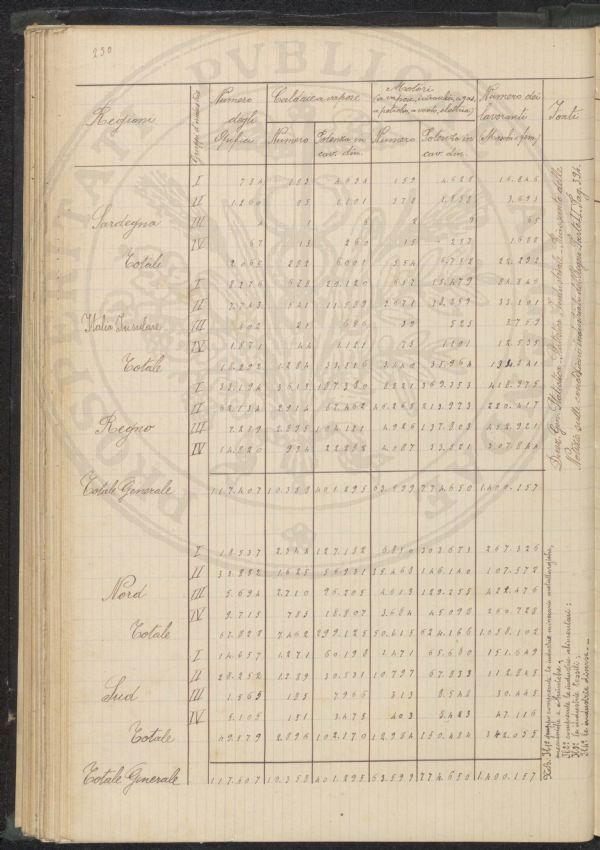 230
PUBLIC
PROSPERITAT
Regioni
Gruppi d'industrie
Numero degli Opifici
Caldaie a vapore
Numero
Potenza in cav. din.
Motori (a vapore, idraulici, a gas, a petrolio, a vento, elettrici)
Numero
Potenza in cav. din.
Numero dei lavoranti (Maschi e fem.)
Fonti
Sardegna
I 734 153 4.634 159 4.628 16.846
II 1.260 85 1.101 378 3.691
III 4 6 2 9 65
IV 67 13 260 15 257 1.688
Totale 2.065 252 6.001 554 6.752 22.292
Italia Insulare
I 8.276 678 20.120 617 15.479 84.240
II 7.743 541 11.589 2.671 18.259 33.101
III 102 21 680 39 525 3.759
IV 1.871 44 1.121 73 1.101 12.535
Totale 18.292 1.284 33.516 3.440 35.964 134.541
Regno
I 33.194 3.615 187.380 8.221 369.353 418.975
II 62.734 2.914 67.462 46.265 213.973 220.417
III 7.259 2.895 104.121 4.926 137.803 452.921
IV 14.220 934 22.252 4.087 53.521 307.844
Totale Generale 117.407 10.358 401.295 63.599 774.650 1.400.157
Nord
I 18.537 2.344 127.182 6.810 303.673 267.326
II 33.882 1.625 56.931 35.468 146.140 107.572
III 5.694 2.710 96.205 4.613 129.255 422.476
IV 9.715 783 18.807 3.684 45.098 260.728
Totale 67.828 7.462 299.125 50.615 624.166 1.058.102
Sud
I 14.657 1.271 60.198 1.471 65.680 151.649
II 28.252 1.289 30.531 10.797 67.833 112.845
III 1.565 185 7.966 313 8.548 30.445
IV 5.105 151 3.475 403 8.423 47.116
Totale 49.579 2.896 102.170 12.984 150.484 342.055
Totale Generale 117.407 10.358 401.295 63.599 774.650 1.400.157
Direz. Gen. Statistica. Statistica Industriale. Riassunto delle
Notizie sulle condizioni industriali del Regno. Parte I. Pag. 334.
N.B. Il 1° gruppo comprende le industrie minerarie metallurgiche,
meccaniche e chimiche;
Il 2° comprende le industrie alimentari;
Il 3° le industrie tessili;
Il 4° le industrie diverse.